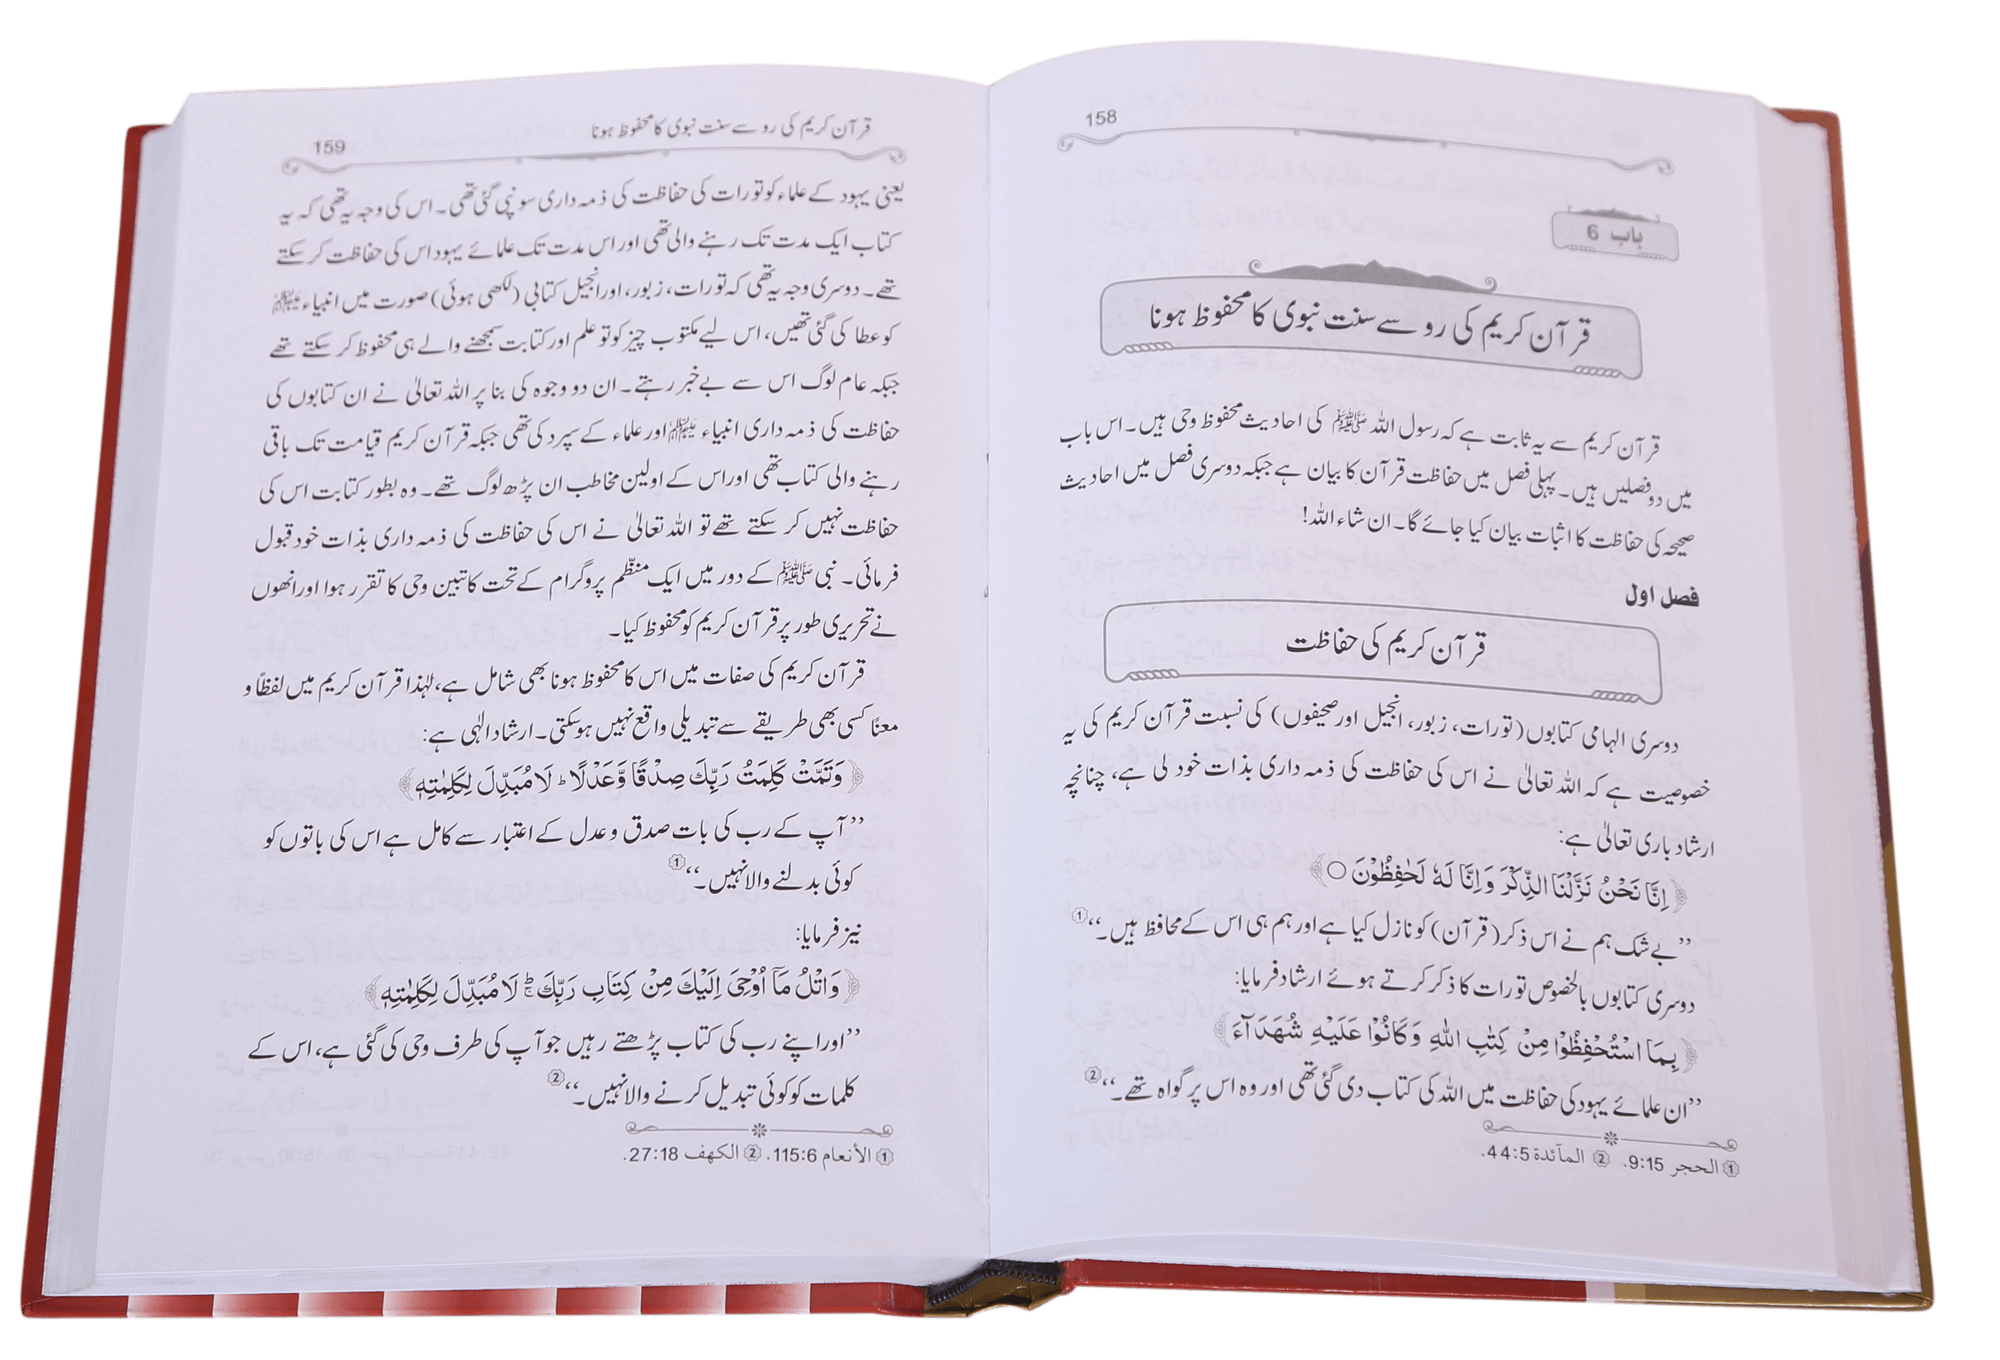 158
باب 6
قرآن کریم کی رو سے سنت نبوی کا محفوظ ہونا
قرآن کریم سے یہ ثابت ہے کہ رسول اللہ ﷺ کی احادیث محفوظ وحی ہیں۔ اس باب
میں دو فصلیں ہیں۔ پہلی فصل میں حفاظت قرآن کا بیان ہے جبکہ دوسری فصل میں احادیث
صحیحہ کی حفاظت کا اثبات بیان کیا جائے گا۔ ان شاء اللہ!
فصل اول
قرآن کریم کی حفاظت
دوسری الہامی کتابوں (تورات، زبور، انجیل اور صحیفوں) کی نسبت قرآن کریم کی یہ
خصوصیت ہے کہ اللہ تعالیٰ نے اس کی حفاظت کی ذمہ داری بذات خود لی ہے، چنانچہ
ارشاد باری تعالیٰ ہے:
﴿ اِنَّا نَحْنُ نَزَّلْنَا الذِّكْرَ وَ اِنَّا لَهٗ لَحٰفِظُوْنَ ○ ﴾
”بے شک ہم نے اس ذکر (قرآن) کو نازل کیا ہے اور ہم ہی اس کے محافظ ہیں۔“ ①
دوسری کتابوں بالخصوص تورات کا ذکر کرتے ہوئے ارشاد فرمایا:
﴿ بِمَا اسْتُحْفِظُوْا مِنْ كِتٰبِ اللّٰهِ وَ كَانُوْا عَلَيْهِ شُهَدَآءَ ﴾
”ان علمائے یہود کی حفاظت میں اللہ کی کتاب دی گئی تھی اور وہ اس پر گواہ تھے۔“ ②
① الحجر 9:15. ② المآئدة 44:5.
159
قرآن کریم کی رو سے سنت نبوی کا محفوظ ہونا
یعنی یہود کے علماء کو تورات کی حفاظت کی ذمہ داری سونپی گئی تھی۔ اس کی وجہ یہ تھی کہ یہ
کتاب ایک مدت تک رہنے والی تھی اور اس مدت تک علمائے یہود اس کی حفاظت کر سکتے
تھے۔ دوسری وجہ یہ تھی کہ تورات، زبور، اور انجیل کتابی (لکھی ہوئی) صورت میں انبیاء علیہم السلام
کو عطا کی گئی تھیں، اس لیے مکتوب چیز کو تو علم اور کتابت سمجھنے والے ہی محفوظ کر سکتے تھے
جبکہ عام لوگ اس سے بے خبر رہتے۔ ان دو وجوہ کی بنا پر اللہ تعالیٰ نے ان کتابوں کی
حفاظت کی ذمہ داری انبیاء علیہم السلام اور علماء کے سپرد کی تھی جبکہ قرآن کریم قیامت تک باقی
رہنے والی کتاب تھی اور اس کے اولین مخاطب ان پڑھ لوگ تھے۔ وہ بطور کتابت اس کی
حفاظت نہیں کر سکتے تھے تو اللہ تعالیٰ نے اس کی حفاظت کی ذمہ داری بذات خود قبول
فرمائی۔ نبی ﷺ کے دور میں ایک منظّم پروگرام کے تحت کاتبین وحی کا تقرر ہوا اور انھوں
نے تحریری طور پر قرآن کریم کو محفوظ کیا۔
قرآن کریم کی صفات میں اس کا محفوظ ہونا بھی شامل ہے، لہٰذا قرآن کریم میں لفظًا و
معنًا کسی بھی طریقے سے تبدیلی واقع نہیں ہو سکتی۔ ارشاد الٰہی ہے:
﴿ وَ تَمَّتْ كَلِمَتُ رَبِّكَ صِدْقًا وَّ عَدْلًا ؕ لَا مُبَدِّلَ لِكَلِمٰتِهٖ ﴾
”آپ کے رب کی بات صدق و عدل کے اعتبار سے کامل ہے اس کی باتوں کو
کوئی بدلنے والا نہیں۔“ ①
نیز فرمایا:
﴿ وَ اتْلُ مَاۤ اُوْحِیَ اِلَيْكَ مِنْ كِتَابِ رَبِّكَ ؕۚ لَا مُبَدِّلَ لِكَلِمٰتِهٖ ﴾
”اور اپنے رب کی کتاب پڑھتے رہیں جو آپ کی طرف وحی کی گئی ہے، اس کے
کلمات کو کوئی تبدیل کرنے والا نہیں۔“ ②
① الأنعام 115:6. ② الكهف 27:18.